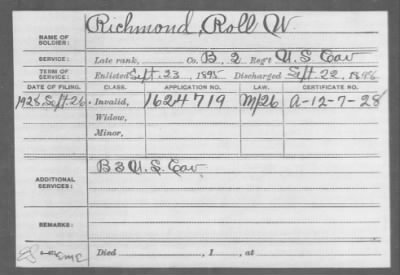 NAME OF SOLDIER: Richmond, Roll W.
SERVICE: Late rank, Co. B, 2 Reg't U.S. Cav
TERM OF SERVICE: Enlisted Sept. 23, 1895 Discharged Sept. 22, 1896
DATE OF FILING. CLASS. APPLICATION NO. LAW. CERTIFICATE NO.
1928, Sept. 26 Invalid, 1624719 M/26 A-12-7-28
Widow,
Minor,
ADDITIONAL SERVICES: B 3 U.S. Cav
REMARKS:
Died , 1 , at